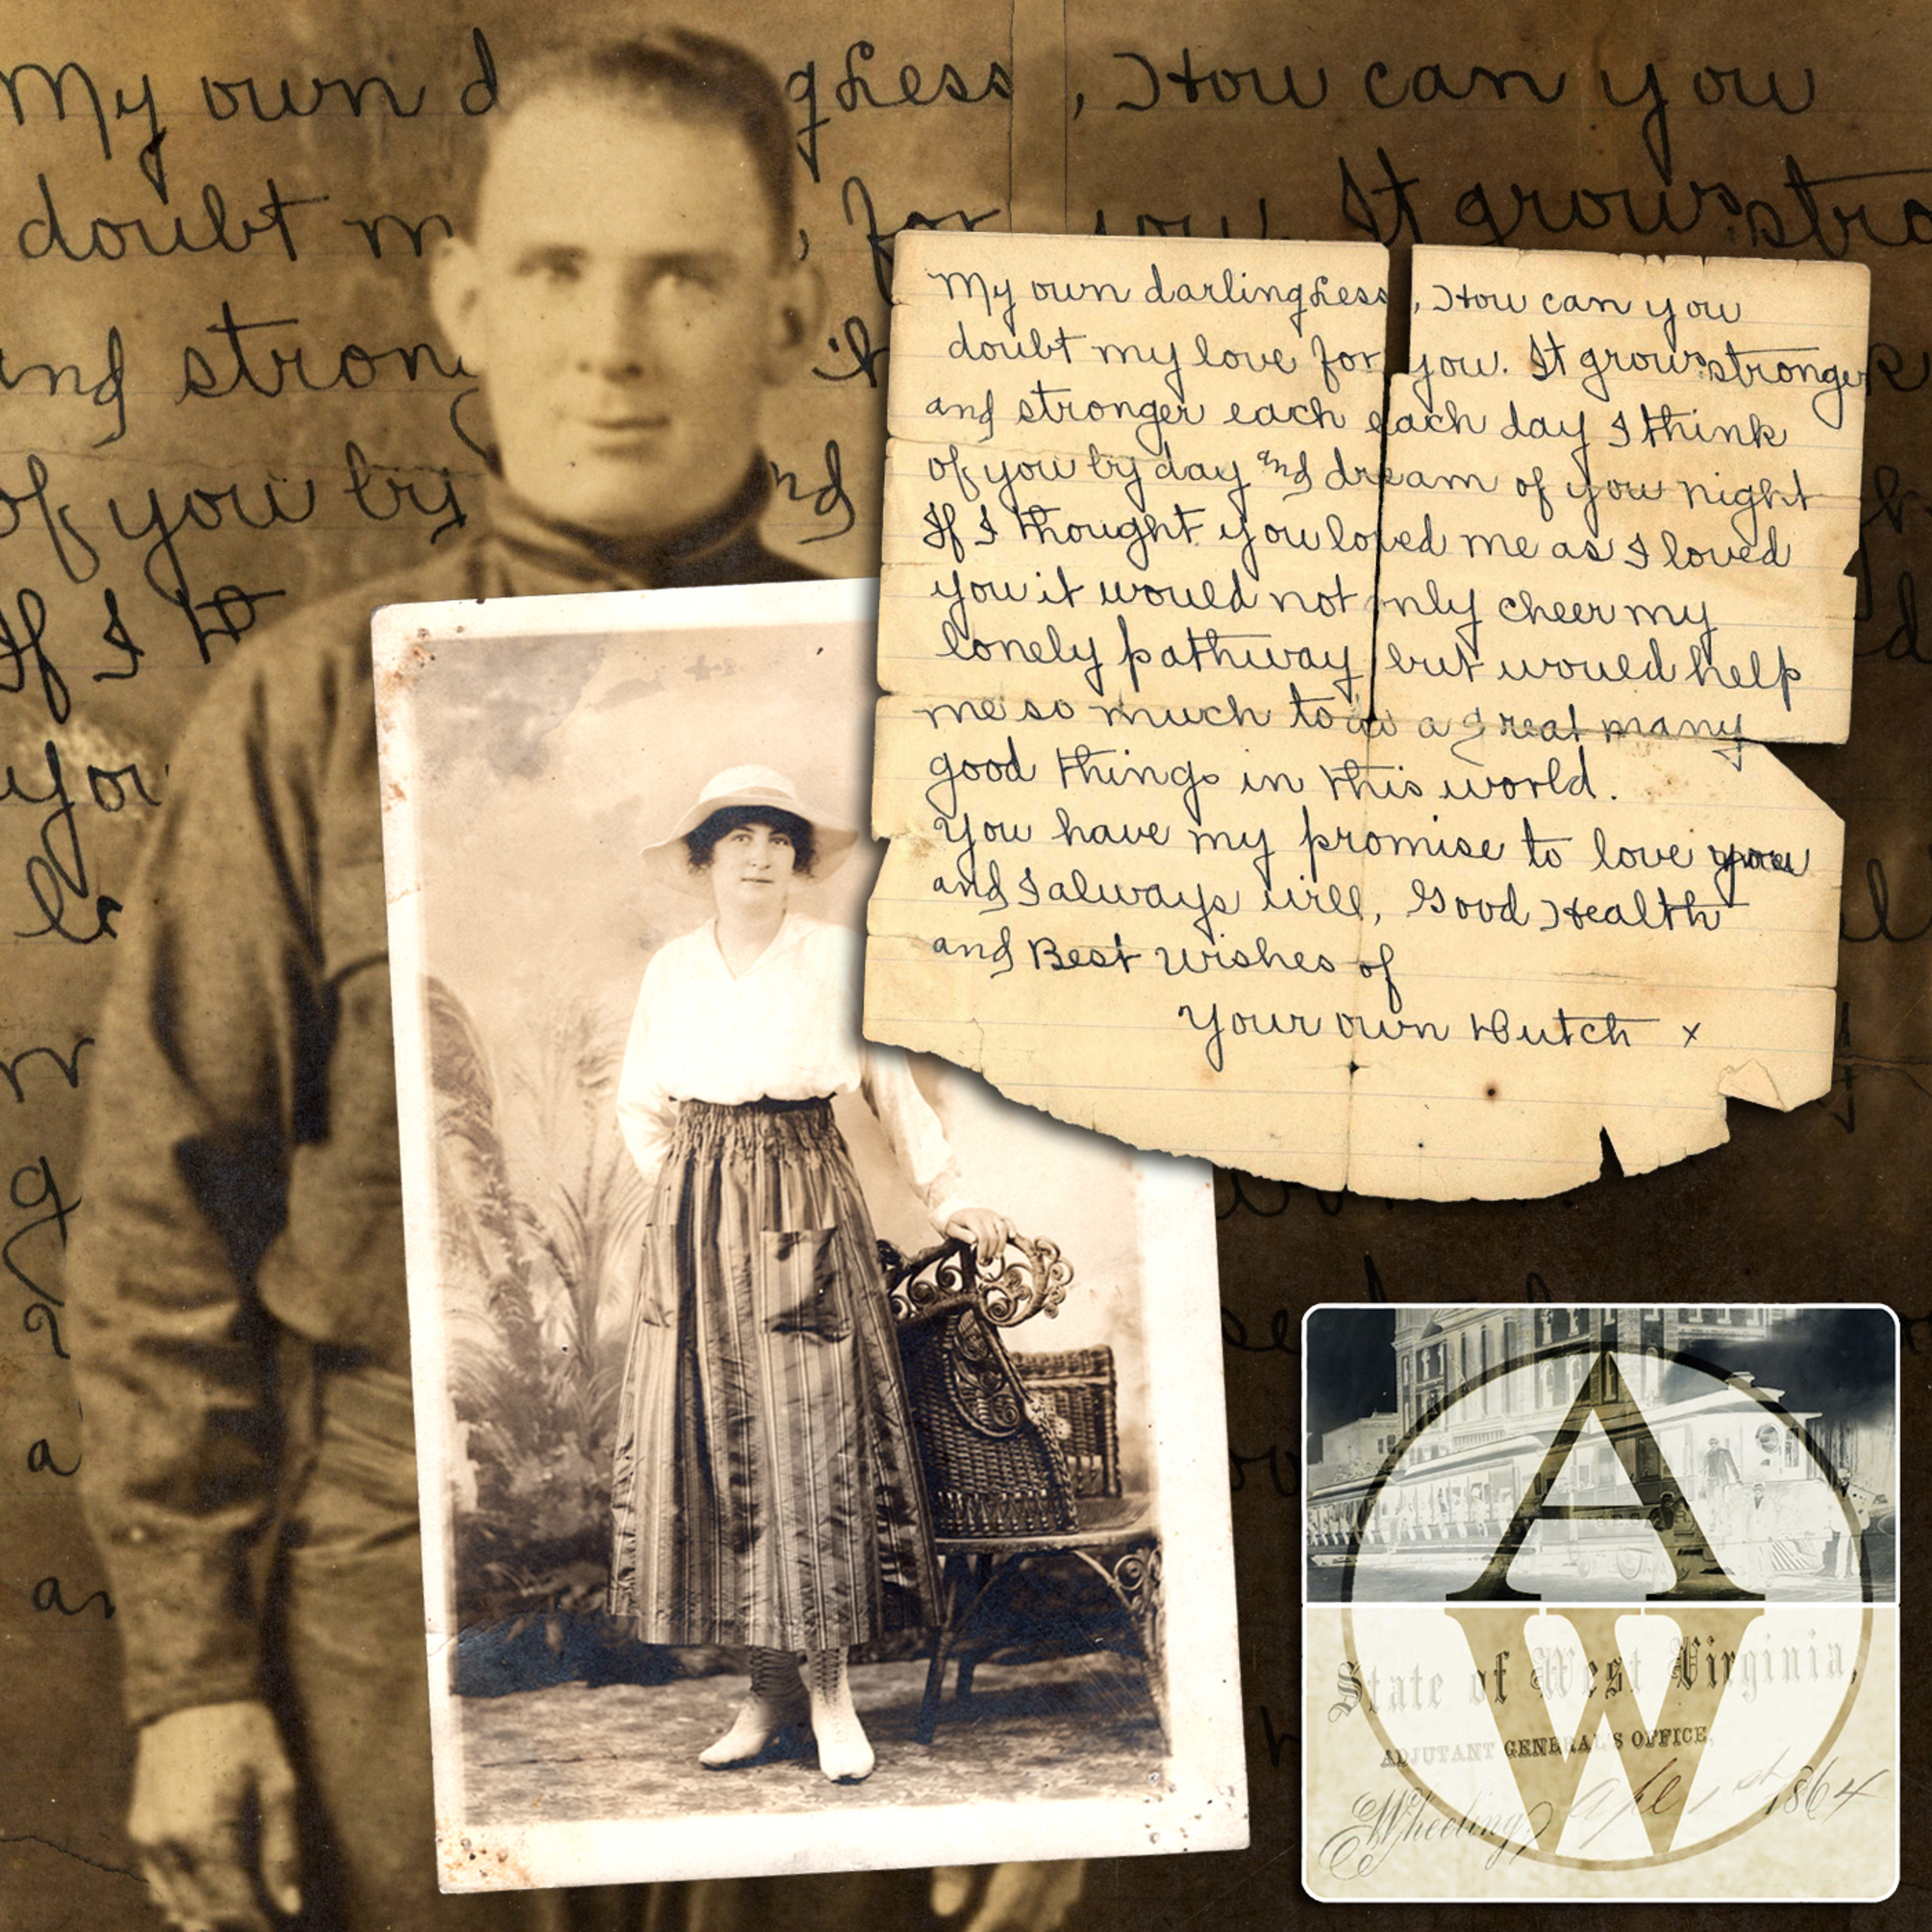 My own d gLess , How can you
doubt m , for you. It grows stro
and strong
of you by nd
If I
you
My own darling Less , How can you
doubt my love for you. It grows stronger
and stronger each each day I think
of you by day and dream of you night
If I thought you loved me as I loved
you it would not only cheer my
lonely pathway but would help
me so much to do a great many
good things in this world.
You have my promise to love you
and I always will, Good Health
and Best Wishes of
Your own Dutch x
A
W
State of West Virginia,
ADJUTANT GENERAL'S OFFICE,
Wheeling, Apl 1st 1864